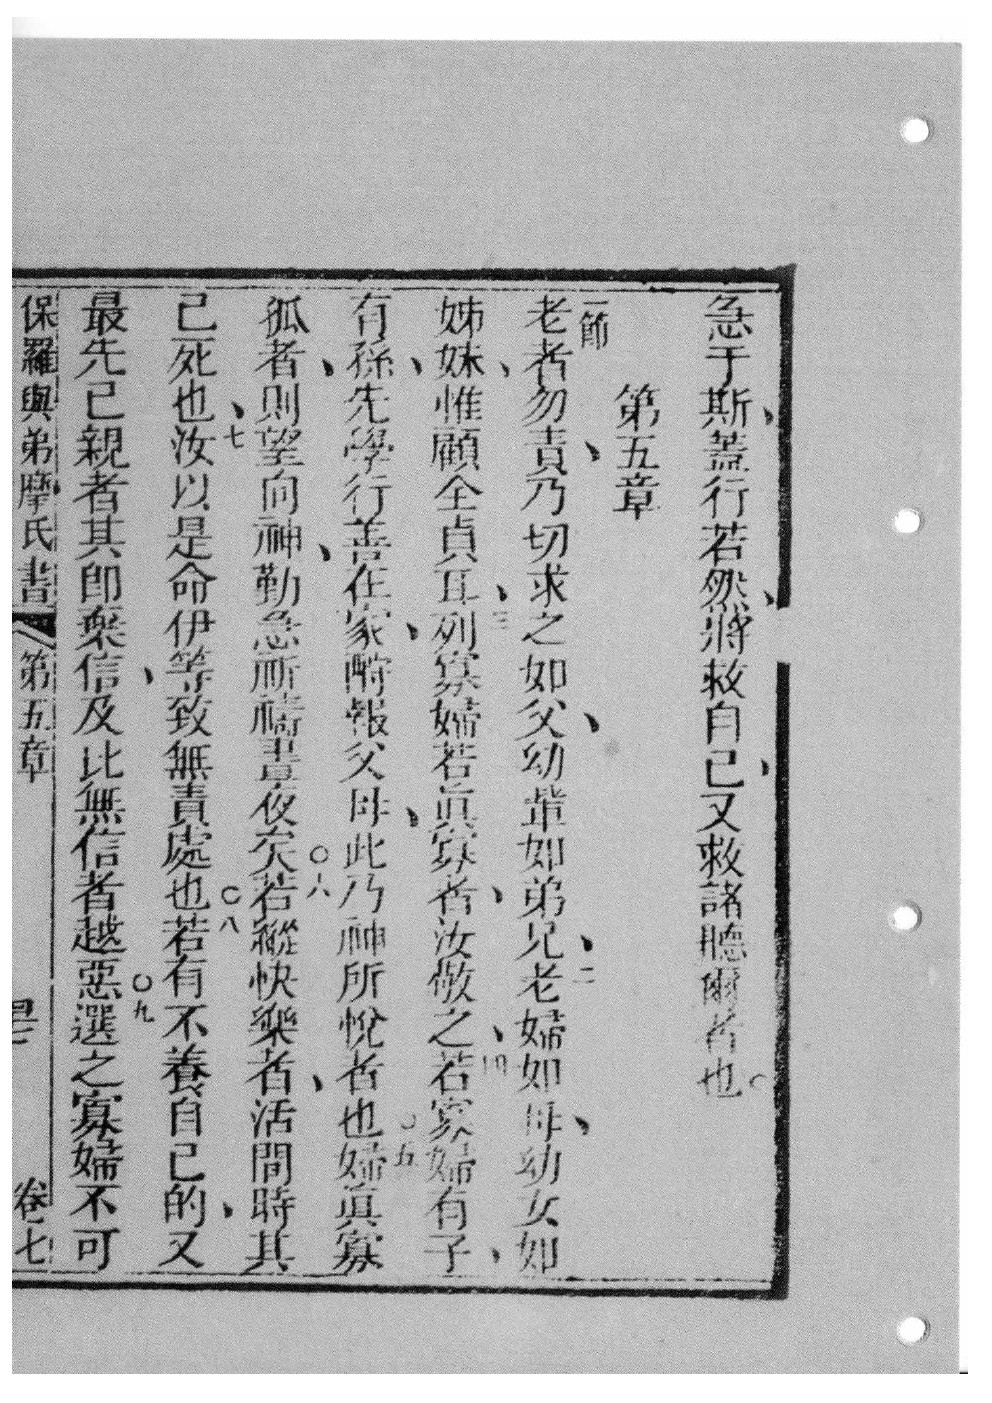 急于斯蓋行若然將救自己又救諸聽爾者也
第五章
一節
老者勿責乃切求之如父幼輩如弟兄二老婦如母幼女如
姊妹惟顧全貞耳三列寡婦若真寡者汝敬之四若寡婦有子
有孫先學行善在家酧報父母此乃神所悅者也五婦真寡
孤者則望向神勤急祈禱晝夜矣六若縱快樂者活間時其
己死也七汝以是命伊等致無責處也八若有不養自己的又
最先己親者其卽棄信及比無信者越惡九選之寡婦不可
保羅與弟摩氏書 第五章 卷七